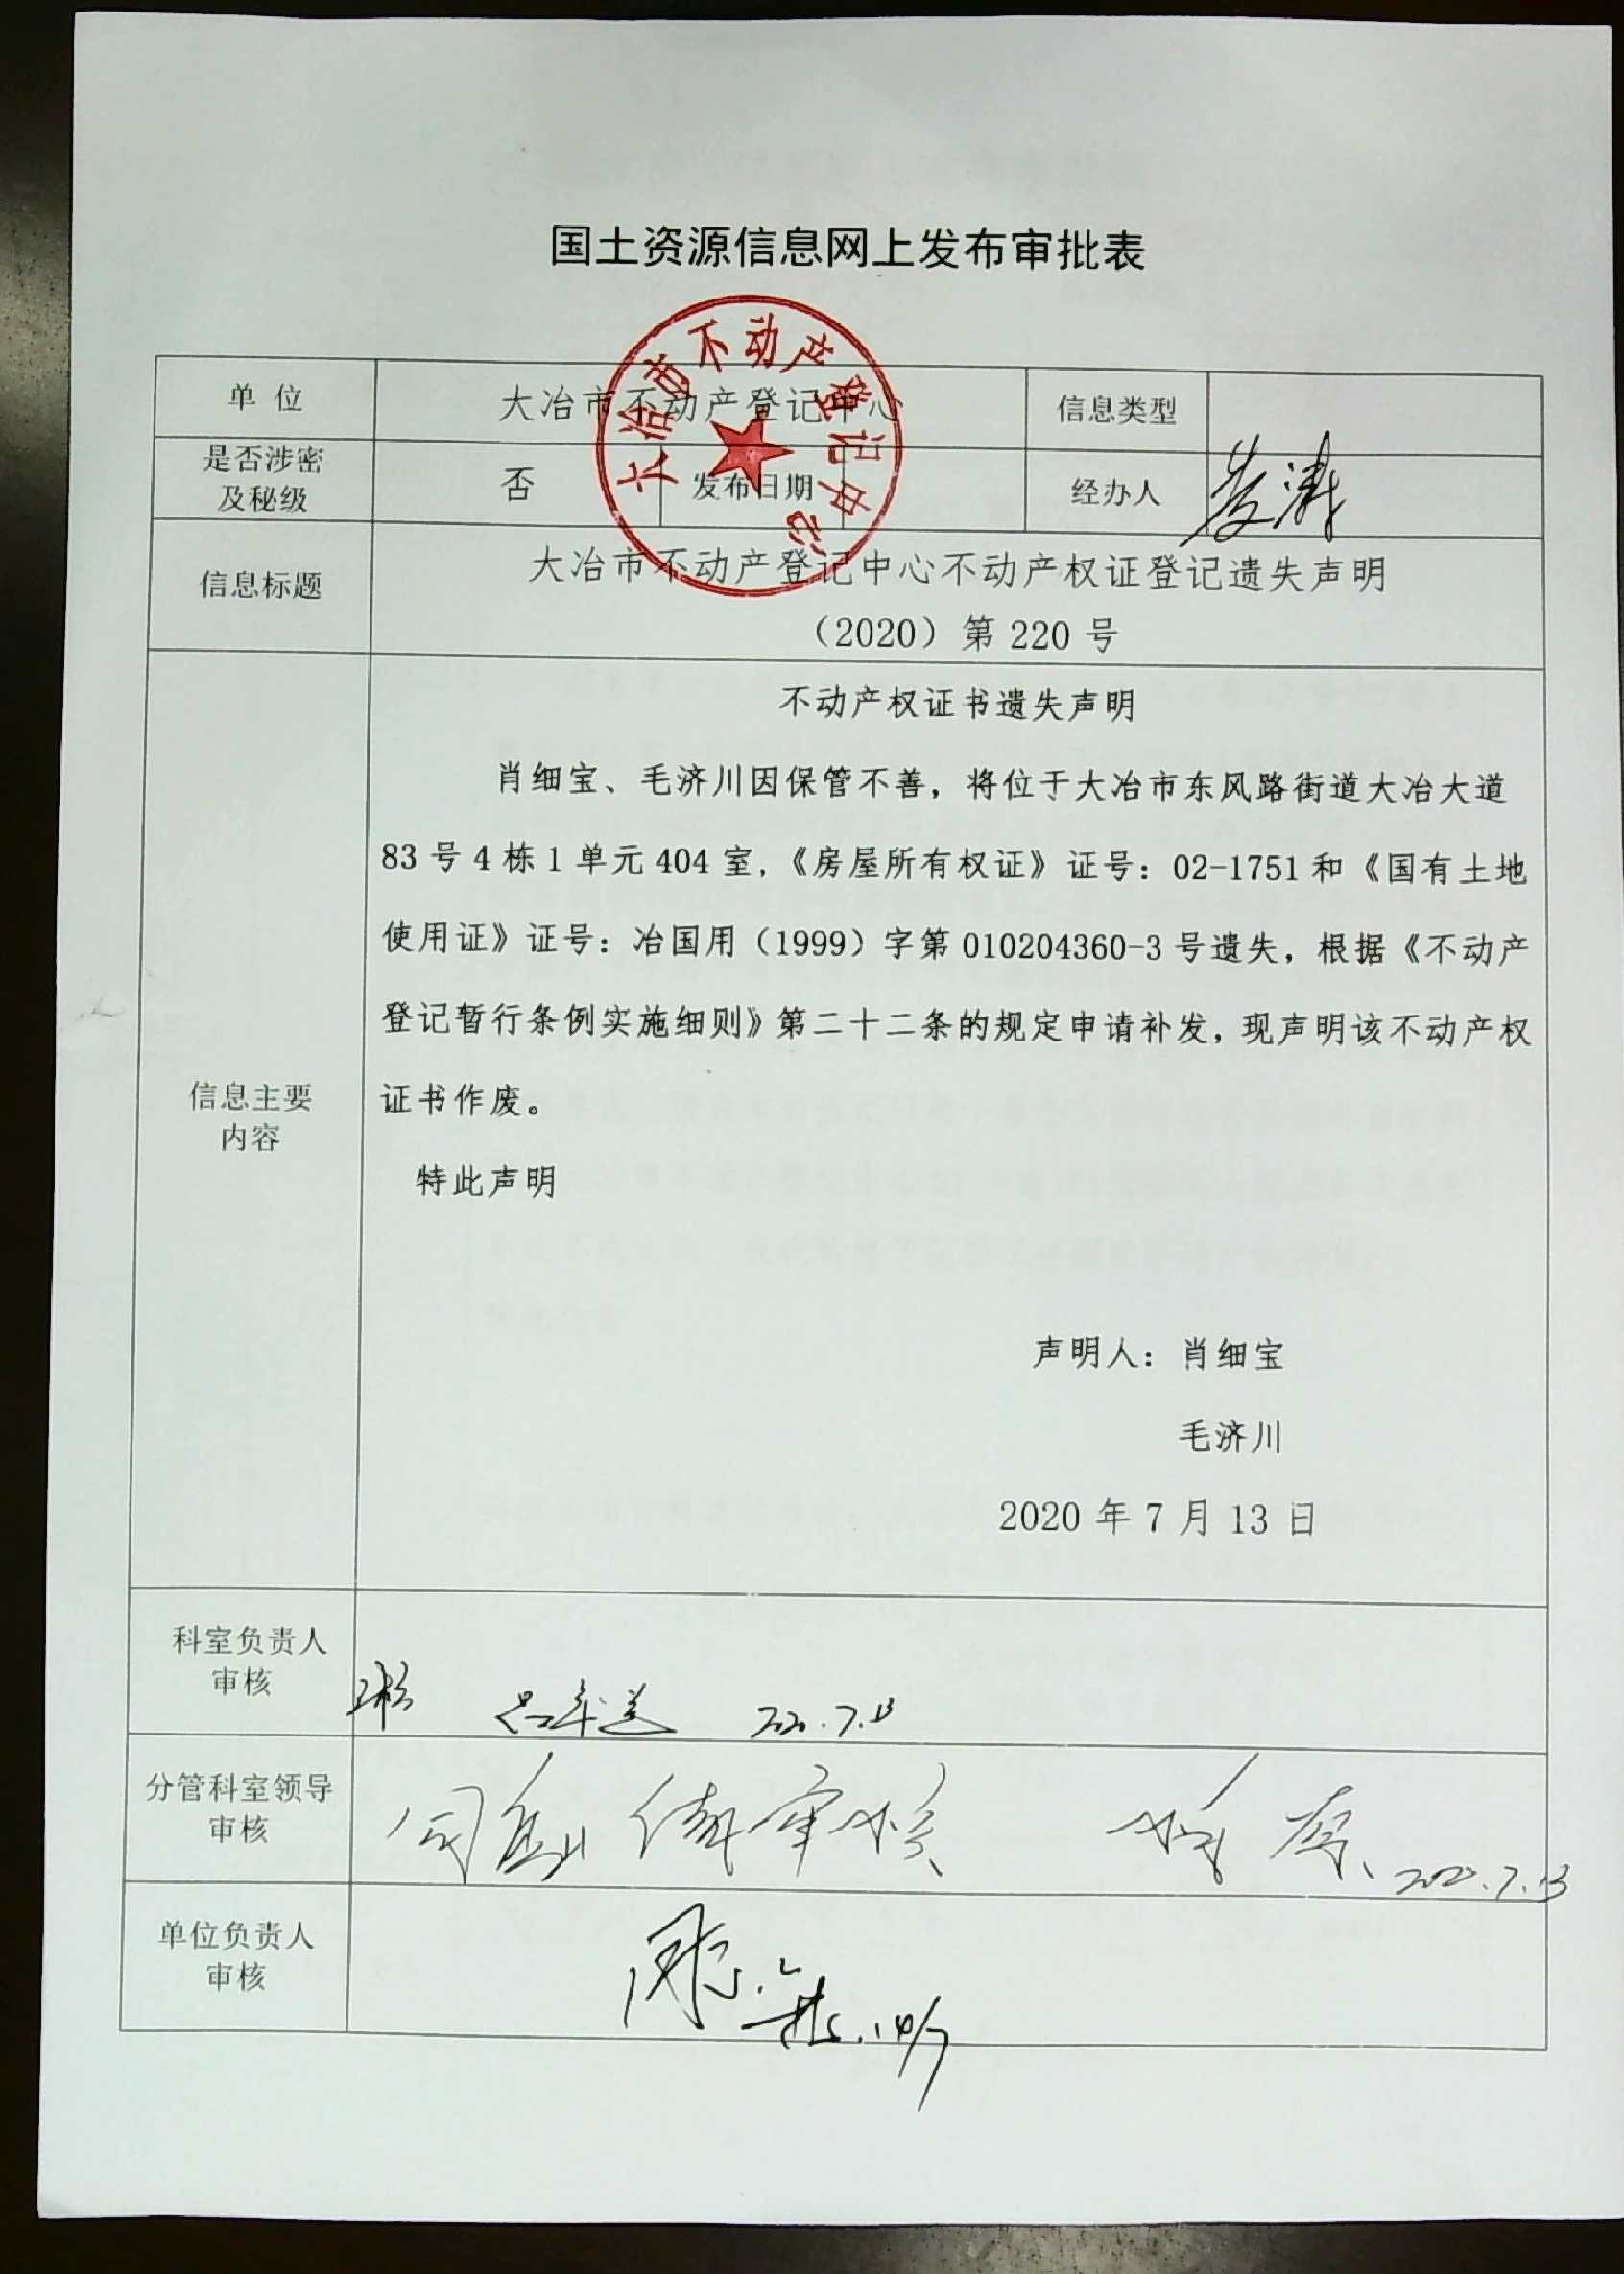 国土资源信息网上发布审批表
单位 大冶市不动产登记中心 信息类型
大冶市不动产登记中心
是否涉密
及秘级 否 发布日期 经办人
信息标题 大冶市不动产登记中心不动产权证登记遗失声明
（2020）第 220 号
不动产权证书遗失声明
肖细宝、毛济川因保管不善，将位于大冶市东风路街道大冶大道
83 号 4 栋 1 单元 404 室，《房屋所有权证》证号：02-1751 和《国有土地
使用证》证号：冶国用（1999）字第 010204360-3 号遗失，根据《不动产
登记暂行条例实施细则》第二十二条的规定申请补发，现声明该不动产权
证书作废。
特此声明
信息主要
内容
声明人：肖细宝
毛济川
2020 年 7 月 13 日
科室负责人
审核 2020.7.13
分管科室领导
审核 2020.7.13
单位负责人
审核 14/7